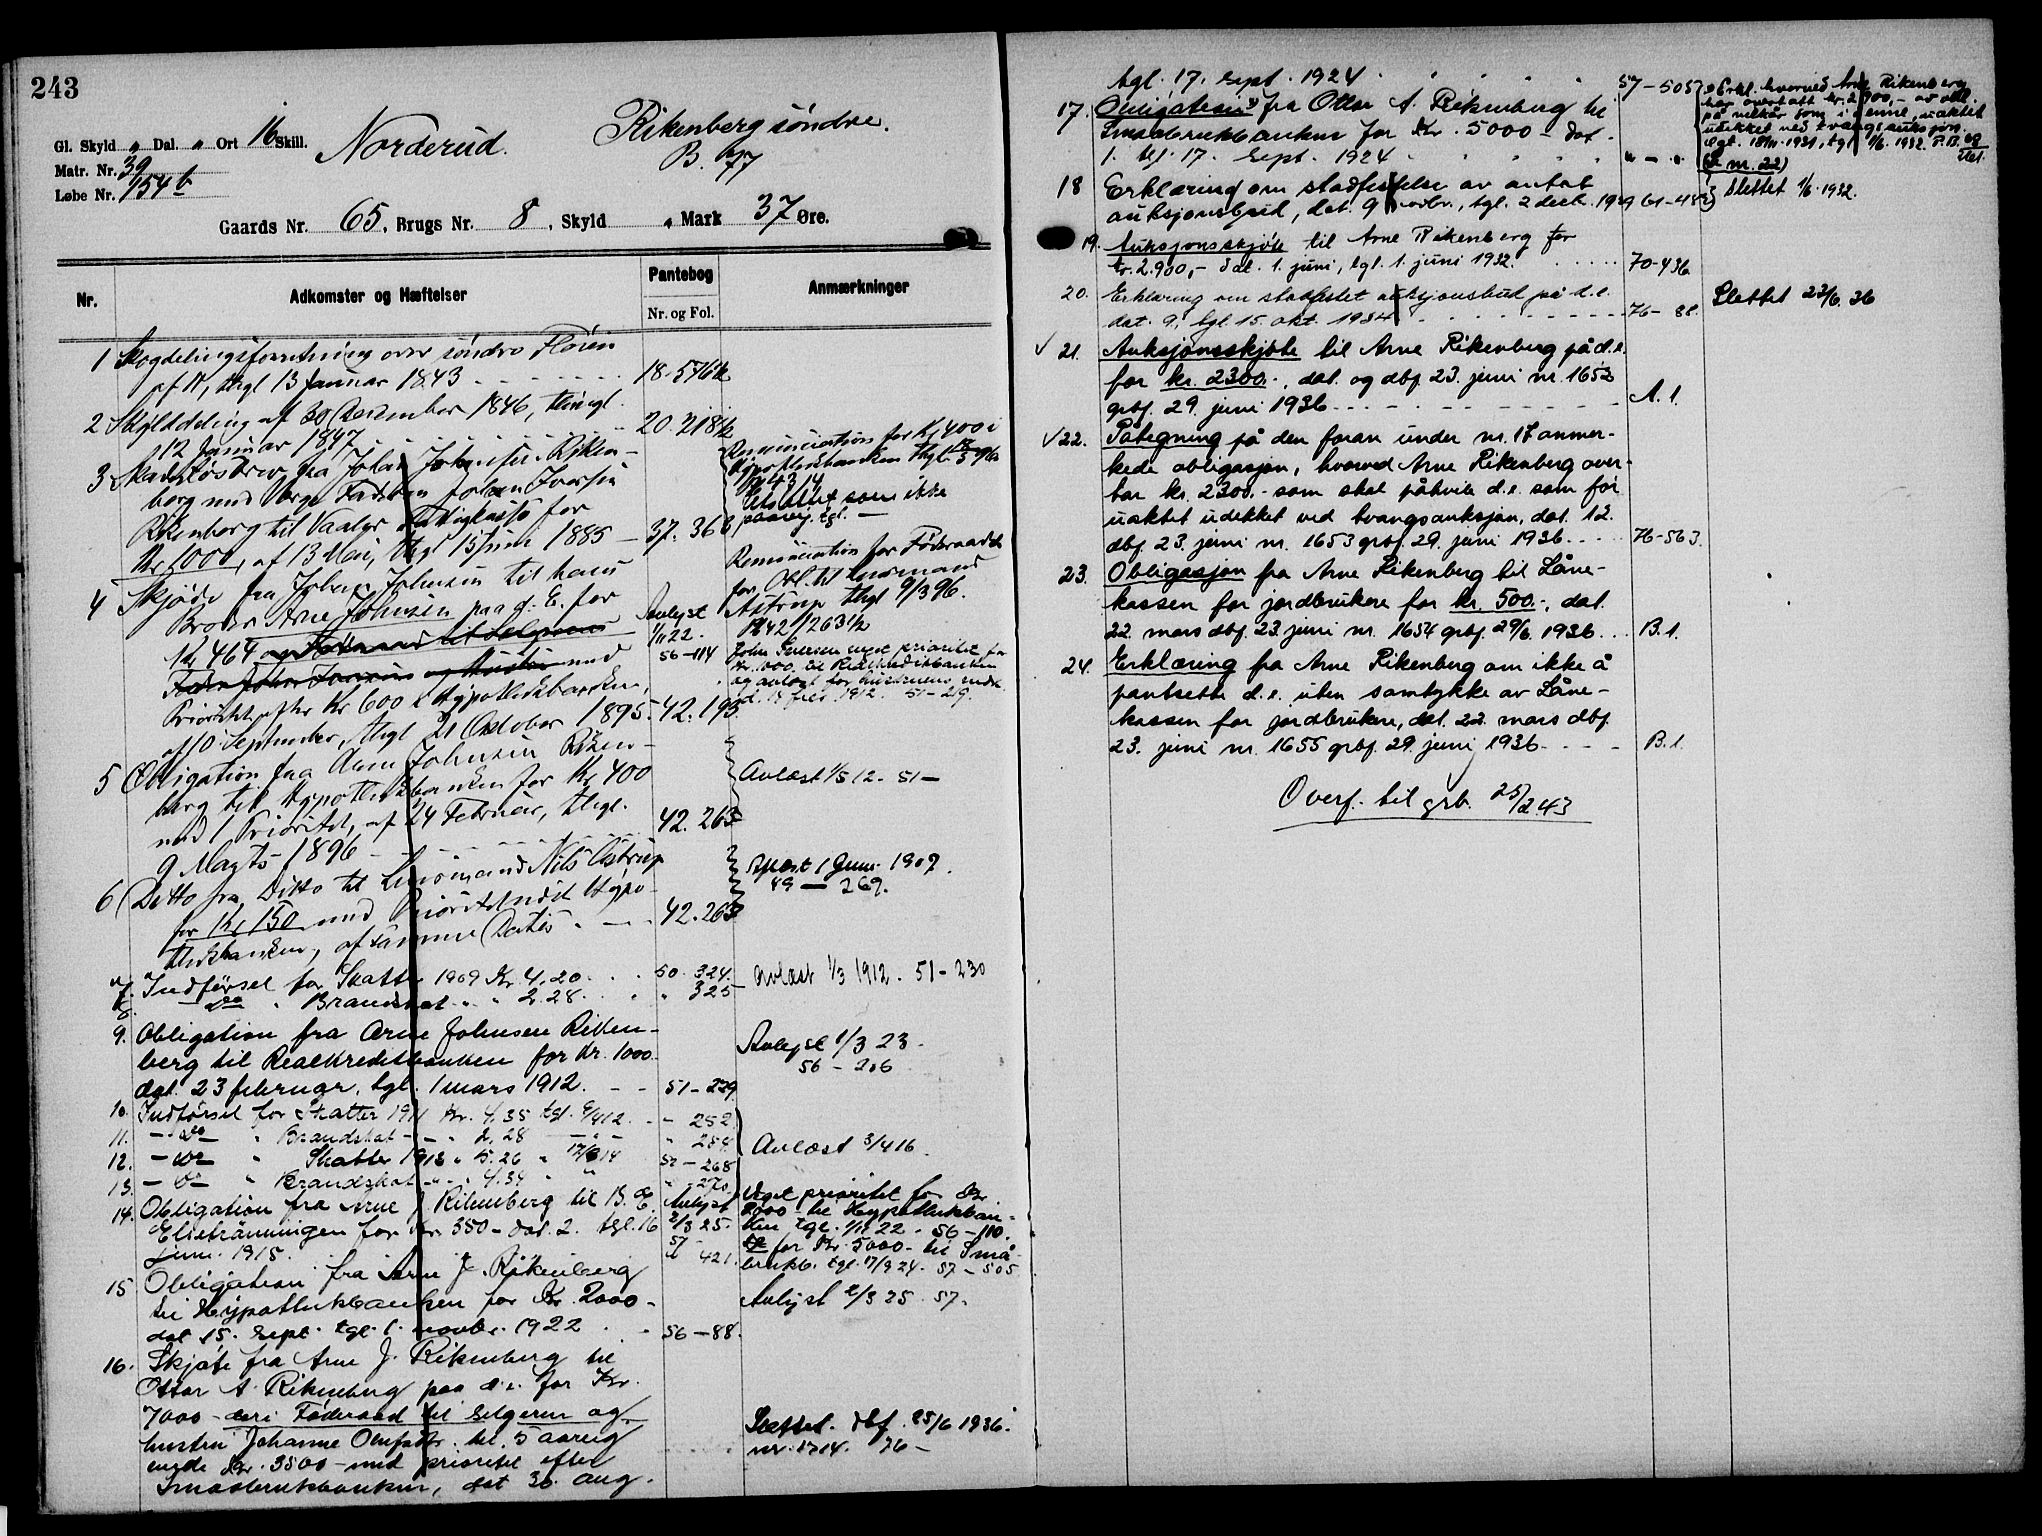 243
Gl. Skyld " Dal. " Ort 16 Skill.
Norderud.
Rikenberg søndre.
Matr. Nr. 39
Løbe Nr. 154 b
Gaards Nr. 65, Brugs Nr. 8, Skyld " Mark 37 Øre.
Nr.
Adkomster og Hæftelser
Pantebog
Nr. og Fol.
Anmærkninger
1 Skogdelingsforretning over søndre Fløien
af 17, thgl 13 Januar 1843 18-576b
2 Skylddeling af 30 December 1846, thingl.
12 Januar 1847 20-218b
3 Skadesløsbrev fra Johan Johnsen Riken-
berg med Johan Iversen
Rikenberg til Vaaler Fattigkasse for
Kr 1000, af 13 Mai, thgl 15 Juni 1885 — 37. 366
Renunciation for Kr 400 i
Hypothekbanken thgl.
paavej. tgl. —
4 Skjøde fra Johan Johnsen til hans
Broder Arne Johnsen paa d. E. for
Kr 464 og Føderaad til Sælgerens
Fader Johan Iversen og Hustru med
Prioritet efter Kr 600 t Hypothekbanken,
af 10 September, thgl 21 October 1895. 42. 195
Avlyst
1/11 22.
56-114
Renunciation for Føderaadet
for Obl. til Lensmand
Astrup thgl 9/3 96.
42/263b
John Iversen veget prioritet for
kr. 1000 til Realkreditbanken
og avlæst for hustruens vedk.
d. 1912. 51-219.
5 Obligation fra Arne Johnsen Riken-
berg til Hypothekbanken for Kr 400
med 1 Prioritet, af 24 Februar, thgl.
9 Marts 1896 42. 263
Avlæst 1/5 12. 51 —
6 Ditto fra Ditto til Lensmand Nils Astrup
for Kr 150 med Prioritet næst Hypo-
thekbanken, af samme Datis 42. 263
Aflæst 1 Juni 1909.
49 — 269.
7. Indførsel for Skatter 1909 Kr. 4.20 50. 324.
8. — do " Brandskat " 2.28 " 325
Avlæst 1/3 1912. 51-230
9. Obligation fra Arne Johnsen Riken-
berg til Realkreditbanken for Kr. 1000
dat. 23 februar, tgl. 1 mars 1912. — 51-229
Avlyst 1/3 23.
56 — 206
10. Indførsel for Skatter 1911 Kr. 4.35 tgl. 9/4 12. — 252
11. — do — " Brandskat — " 2.28 — " — " 254
12. — do — " Skatter 1913 " 5.26 " 17/3 14 52-268
13. — do — " Brandskat " 4.34 " " 270
Avlæst 3/4 16.
14. Obligation fra Arne J. Rikenberg til B. E.
Eliebränningen for kr. 350 — dat. 2. tgl. 16
juni 1915.
Avlyst
2/3 25.
57
421.
Veget prioritet for Kr.
2000 til Hypothekban-
ken tgl. 1/11 22. 56-110.
do for Kr. 5000 — til Små-
brukb. tgl. 17/9 24. 57-505
15 Obligation fra Arne J. Rikenberg
til Hypothekbanken for Kr. 2000 —
dat. 15. sept. tgl. 1. novbr. 1922 56-88.
Avlyst 2/3 25. 57.
16. Skjøte fra Arne J. Rikenberg til
Ottar A. Rikenberg paa d. e. for Kr.
7000 — deri Føderaad til selgeren og
hustru Johanne Olufsdtr. til 5 aarig
verdi Kr. 3500 — med prioritet efter
Smaabrukbanken, dat 30. aug.
Slettet. dbf. 25/6 1936.
nr. 1714. 76 —
tgl. 17. sept. 1924 57-505
17. Obligation fra Ottar A. Rikenberg til
Smaabrukbanken for Kr. 5000 — dat.
1. tgl. 17. sept. 1924 " — "
Erkl. hvorved Arne Rikenberg
har overtatt kr. 2900,- av obl.
på vilkår som i denne, uaktet
udekket ved tvangsauksjon.
tgl. 1/6. 1932.
(Se nr. 22)
18 Erklæring om stadfestelse av antat
auksjonsbud, dat. 9 novbr., tgl. 2 decb. 1929 61-483
Slettet 1/6. 1932.
19. Auksjonsskjøte til Arne Rikenberg for
kr. 2.900,- dat. 1. juni, tgl. 1. juni 1932. 70-436
20. Erklæring om stadfestet auksjonsbud på d. e.
dat. 9, tgl. 15. okt. 1934 76-88.
Slettet 23/6 36
√ 21. Auksjonsskjøte til Arne Rikenberg på d. e.
for kr. 2300.-, dat. og dbf. 23. juni nr. 1652
grbf. 29. juni 1936 A. 1.
√ 22. Påtegning på den foran under nr. 17 anmer-
kede obligasjon, hvorved Arne Rikenberg over-
tar kr. 2300.- som skal påhvile d. e. som før
uaktet udekket ved tvangsauksjon, dat. 12.
dbf. 23. juni nr. 1653 grbf. 29. juni 1936 76-563.
23. Obligasjon fra Arne Rikenberg til Låne-
kassen for jordbrukere for kr. 500.-, dat.
22. mars dbf. 23. juni nr. 1654 grbf. 29/6 1936 B. 1.
24. Erklæring fra Arne Rikenberg om ikke å
pantsette d. e. uten samtykke av Låne-
kassen for jordbrukere, dat. 22. mars dbf.
23. juni nr. 1655 grbf. 29. juni 1936 B. 1.
Overf. til grb. 25/2 43